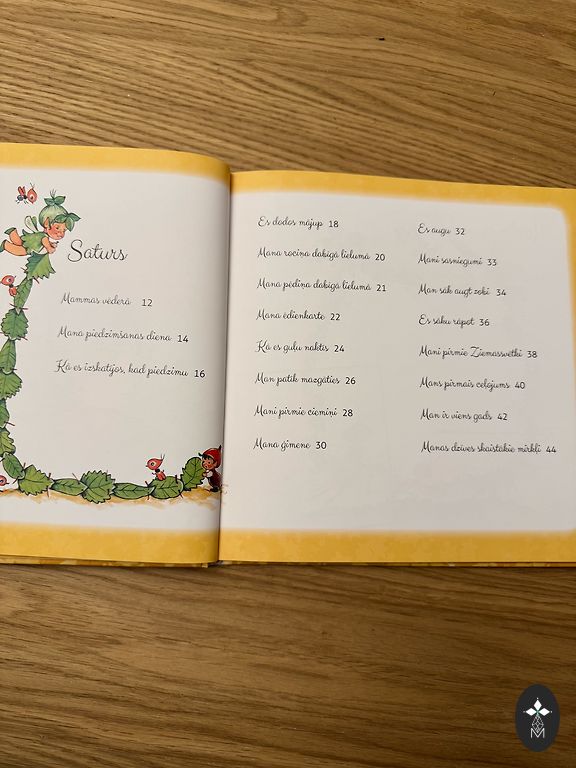 Saturs
Mammas vēderā 12
Mana piedzimšanas diena 14
Kā es izskatījos, kad piedzimu 16
Es dodos mājup 18
Mana rociņa dabīgā lielumā 20
Mana pēdiņa dabīgā lielumā 21
Mana ēdienkarte 22
Kā es guļu naktīs 24
Man patīk mazgāties 26
Mani pirmie ciemiņi 28
Mana ģimene 30
Es augu 32
Mani sasniegumi 33
Man sāk augt zobi 34
Es sāku rāpot 36
Mani pirmie Ziemassvētki 38
Mans pirmais ceļojums 40
Man ir viens gads 42
Manas dzīves skaistākie mirkļi 44
M